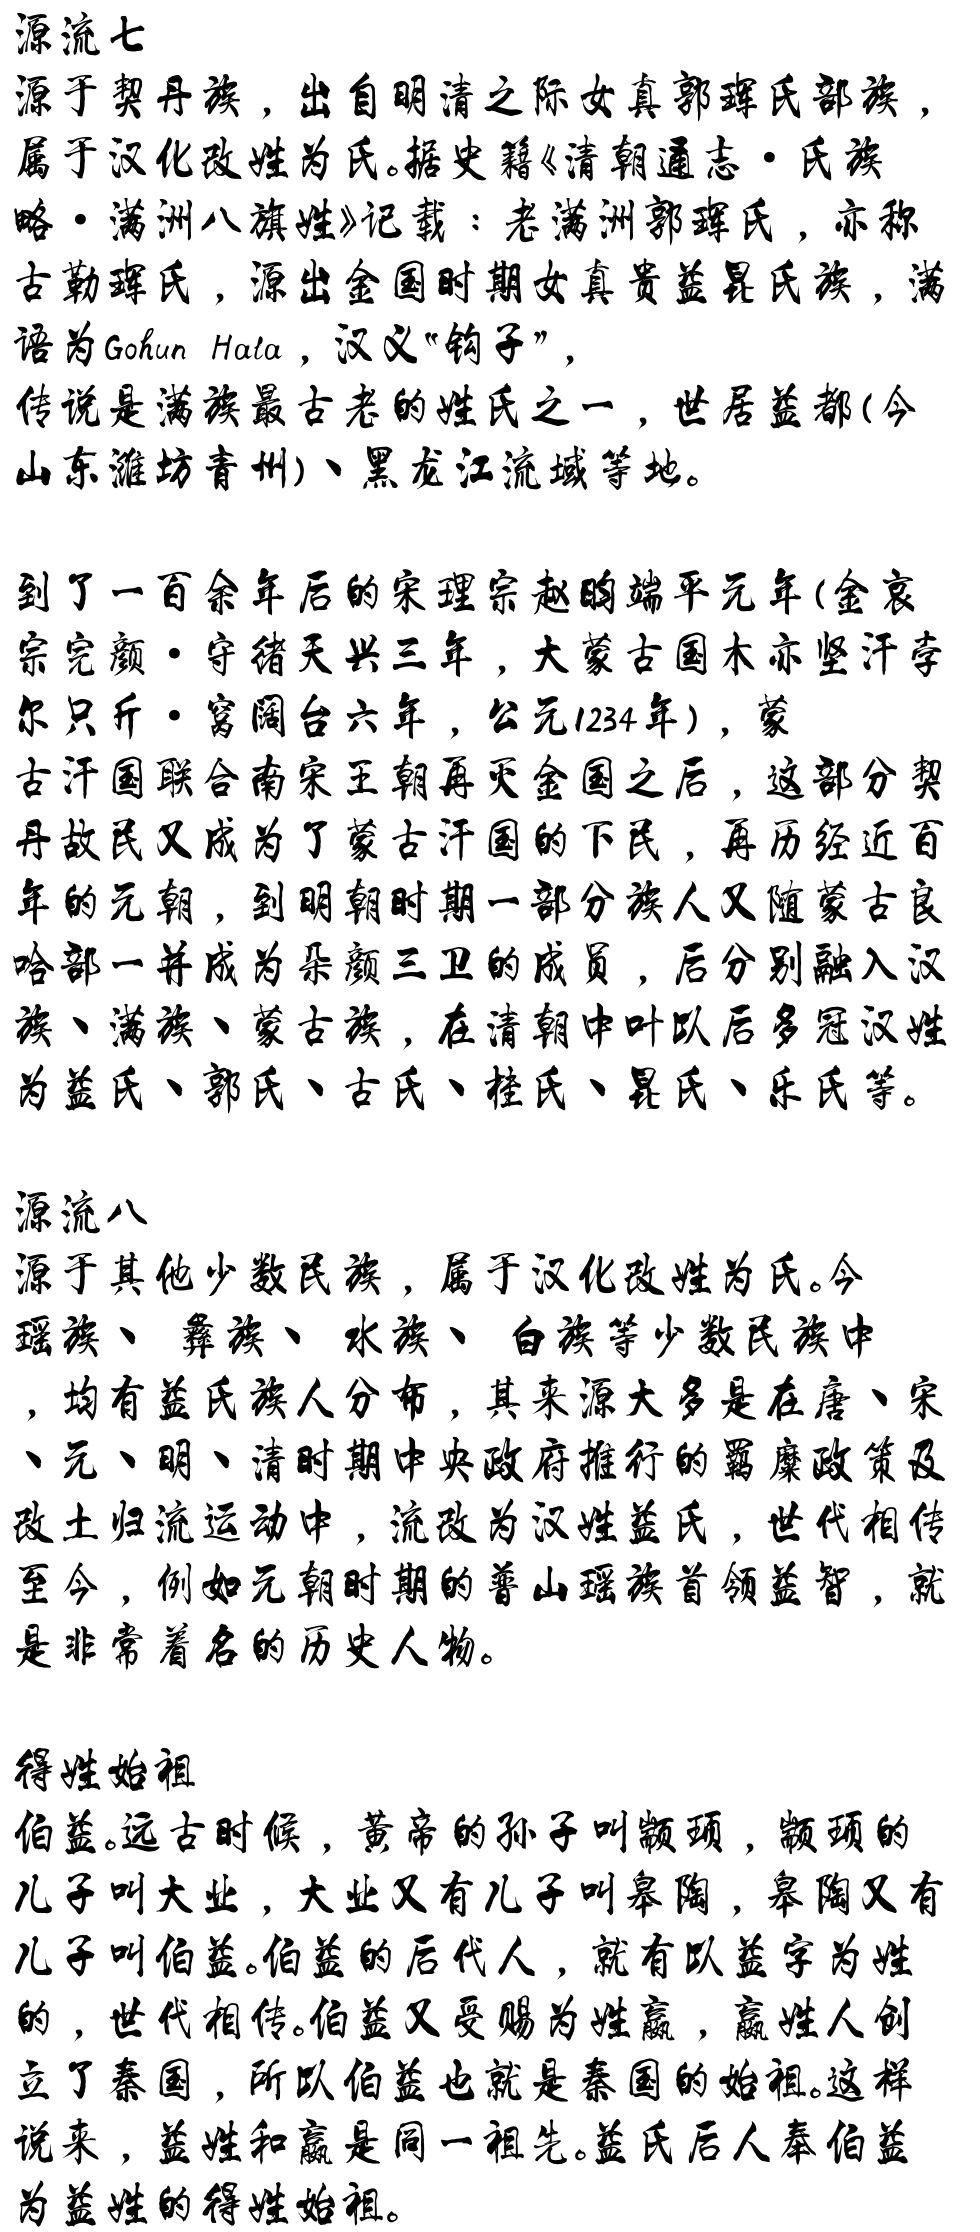 源流七
源于契丹族，出自明清之际女真郭珲氏部族，
属于汉化改姓为氏。据史籍《清朝通志·氏族
略·满洲八旗姓》记载：老满洲郭珲氏，亦称
古勒珲氏，源出金国时期女真贵益昆氏族，满
语为Gohun Hala，汉义“钩子”，
传说是满族最古老的姓氏之一，世居益都(今
山东潍坊青州)、黑龙江流域等地。
到了一百余年后的宋理宗赵昀端平元年(金哀
宗完颜·守绪天兴三年，大蒙古国木亦坚汗孛
尔只斤·窝阔台六年，公元1234年)，蒙
古汗国联合南宋王朝再灭金国之后，这部分契
丹故民又成为了蒙古汗国的下民，再历经近百
年的元朝，到明朝时期一部分族人又随蒙古良
哈部一并成为朵颜三卫的成员，后分别融入汉
族、满族、蒙古族，在清朝中叶以后多冠汉姓
为益氏、郭氏、古氏、桂氏、昆氏、乐氏等。
源流八
源于其他少数民族，属于汉化改姓为氏。今
瑶族、 彝族、 水族、 白族等少数民族中
，均有益氏族人分布，其来源大多是在唐、宋
、元、明、清时期中央政府推行的羁縻政策及
改土归流运动中，流改为汉姓益氏，世代相传
至今，例如元朝时期的普山瑶族首领益智，就
是非常着名的历史人物。
得姓始祖
伯益。远古时候，黄帝的孙子叫颛顼，颛顼的
儿子叫大业，大业又有儿子叫皋陶，皋陶又有
儿子叫伯益。伯益的后代人，就有以益字为姓
的，世代相传。伯益又受赐为姓嬴，嬴姓人创
立了秦国，所以伯益也就是秦国的始祖。这样
说来，益姓和嬴是同一祖先。益氏后人奉伯益
为益姓的得姓始祖。